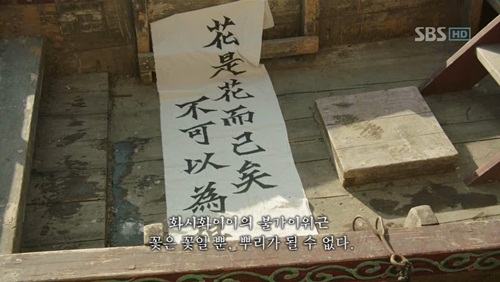 SBS HD
花是花而已矣
不可以為
화시화이이의 불가이위근
꽃은 꽃일 뿐, 뿌리가 될 수 없다.